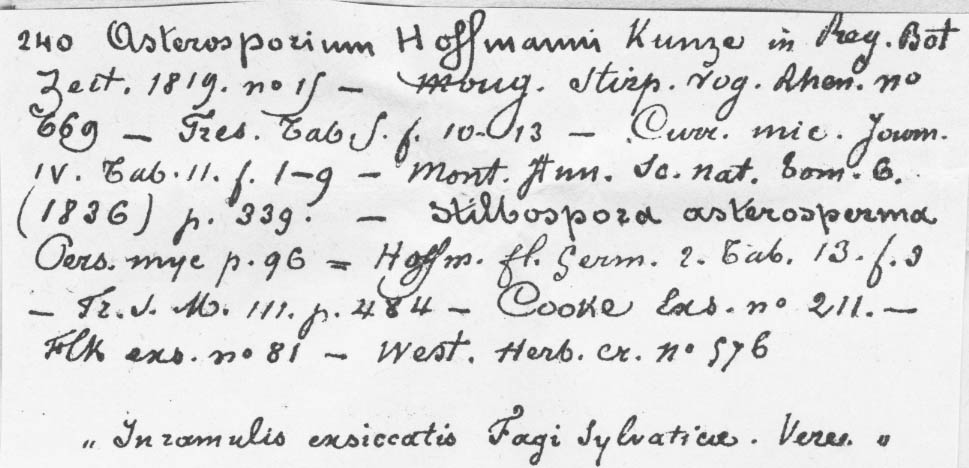 240 Asterosporium Hoffmanni Kunze in Reg. Bot
Zeit. 1819. no 15 — Moug. Stirp. Vog. Rhen. no
669 — Fres. Tab 5. f. 10-13 — Curr. mic. Journ.
IV. Tab. 11. f. 1-9 — Mont. Ann. Sc. nat. Tom. 6.
(1836) p. 339. — Stilbospora asterosperma
Pers. myc p. 96 = Hoffm. fl. Germ. 2. Tab. 13. f. 3
— Fr. S. M. III. p. 484 — Cooke Exs. no 211. —
Flk exs. no 81 — West. Herb. cr. no 576
„ In ramulis exsiccatis Fagi Sylvaticæ. Vere. „